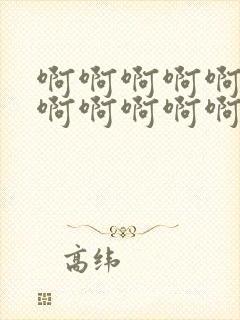 啊啊啊啊啊
啊啊啊啊啊
高纬